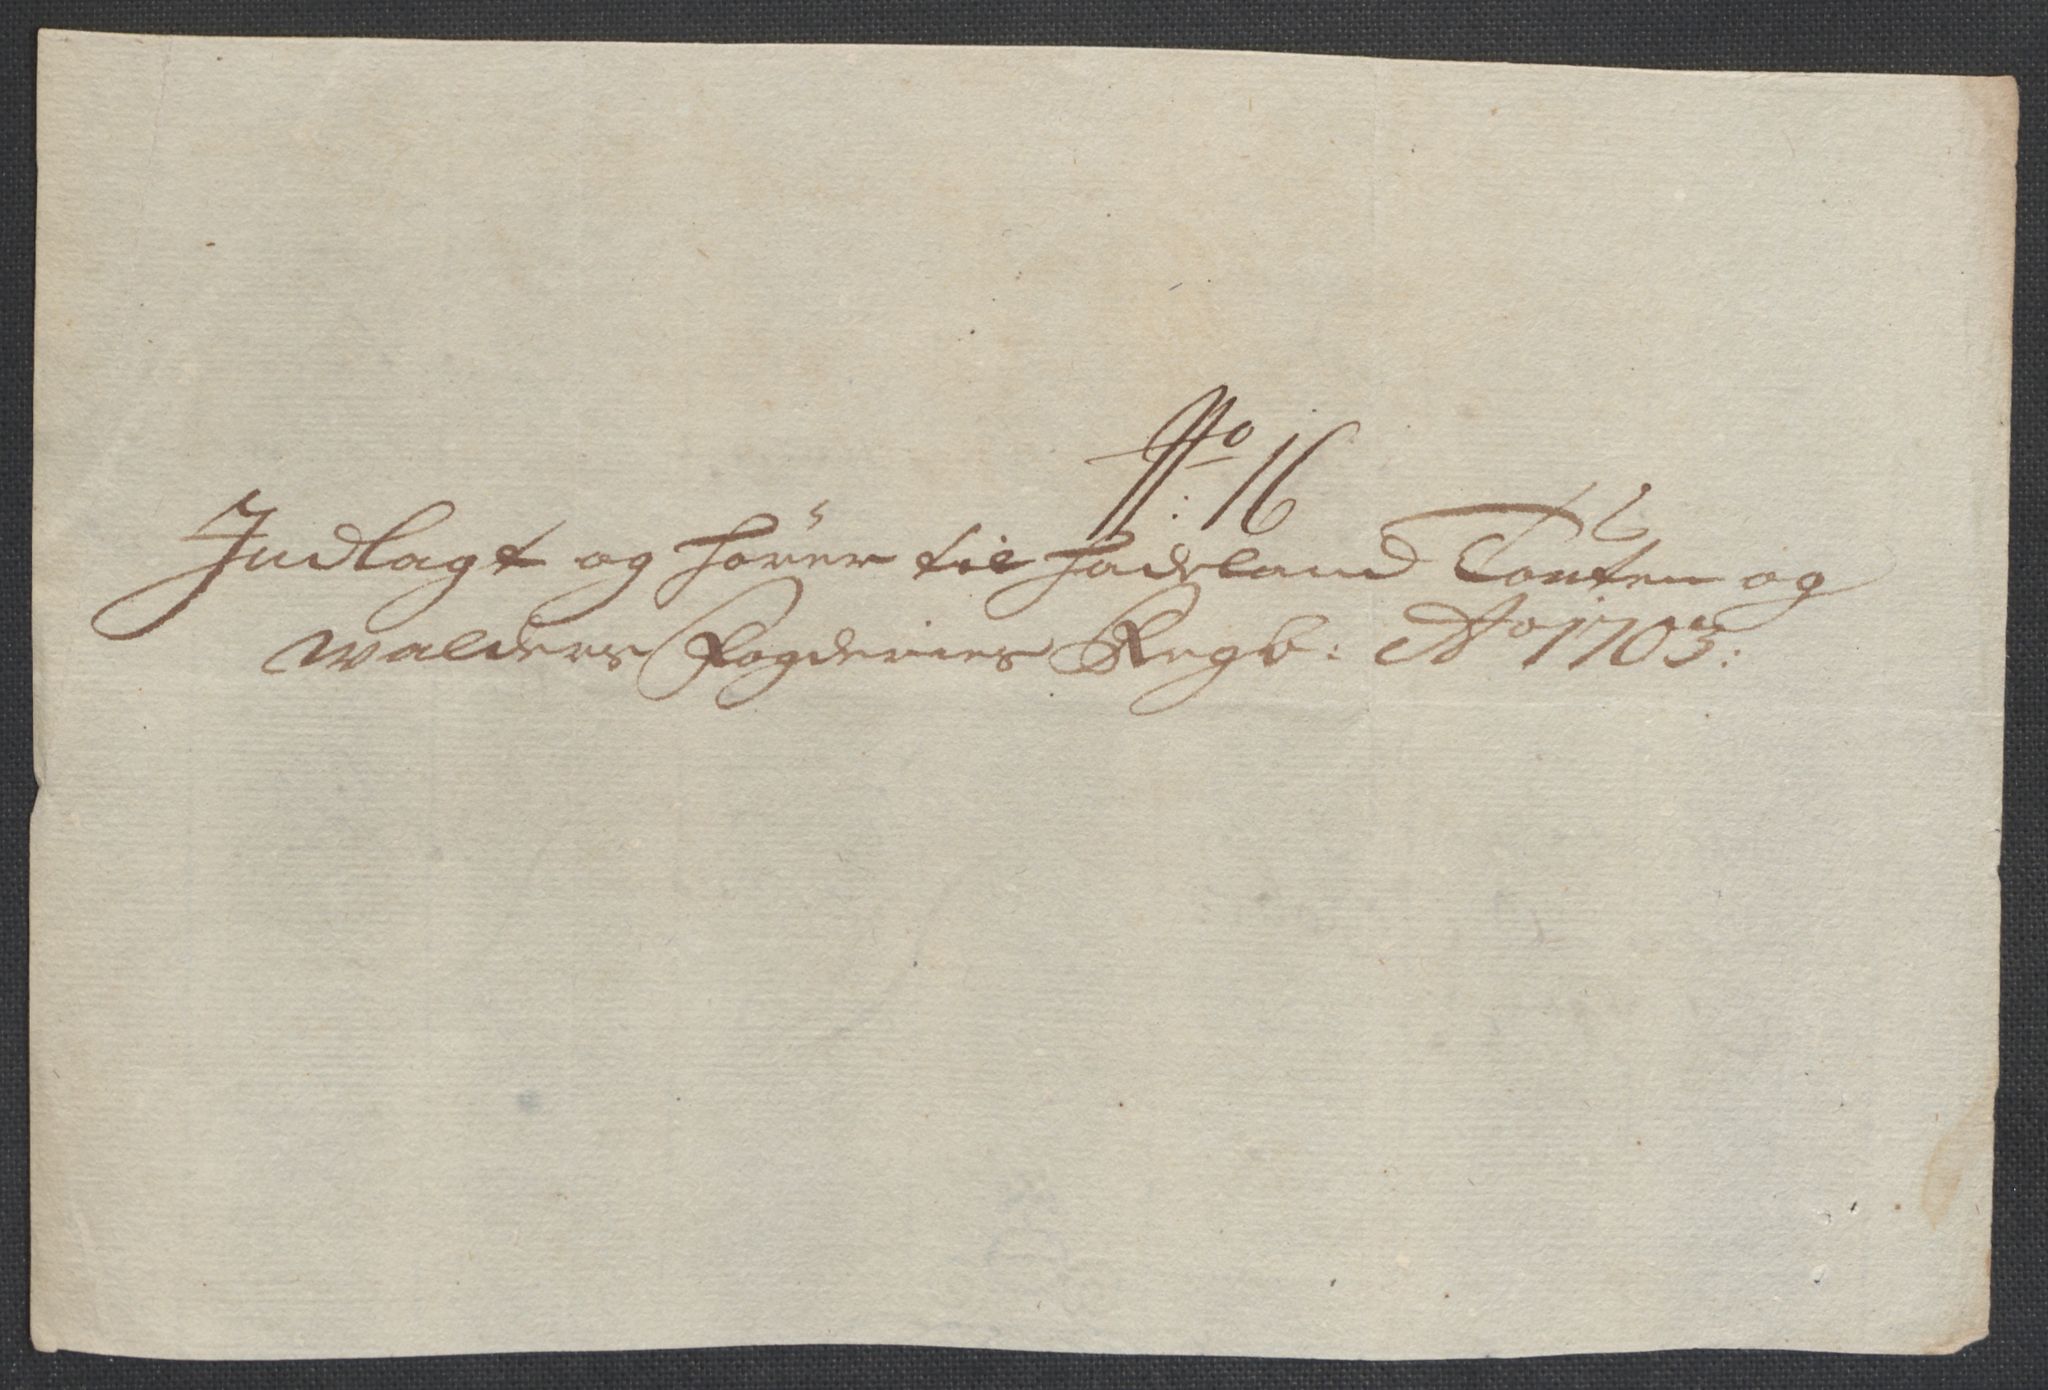 No: 16
Indlagt og hörer til Hadeland Toxten og
Walders Fogderies Regb: Ao 1703: